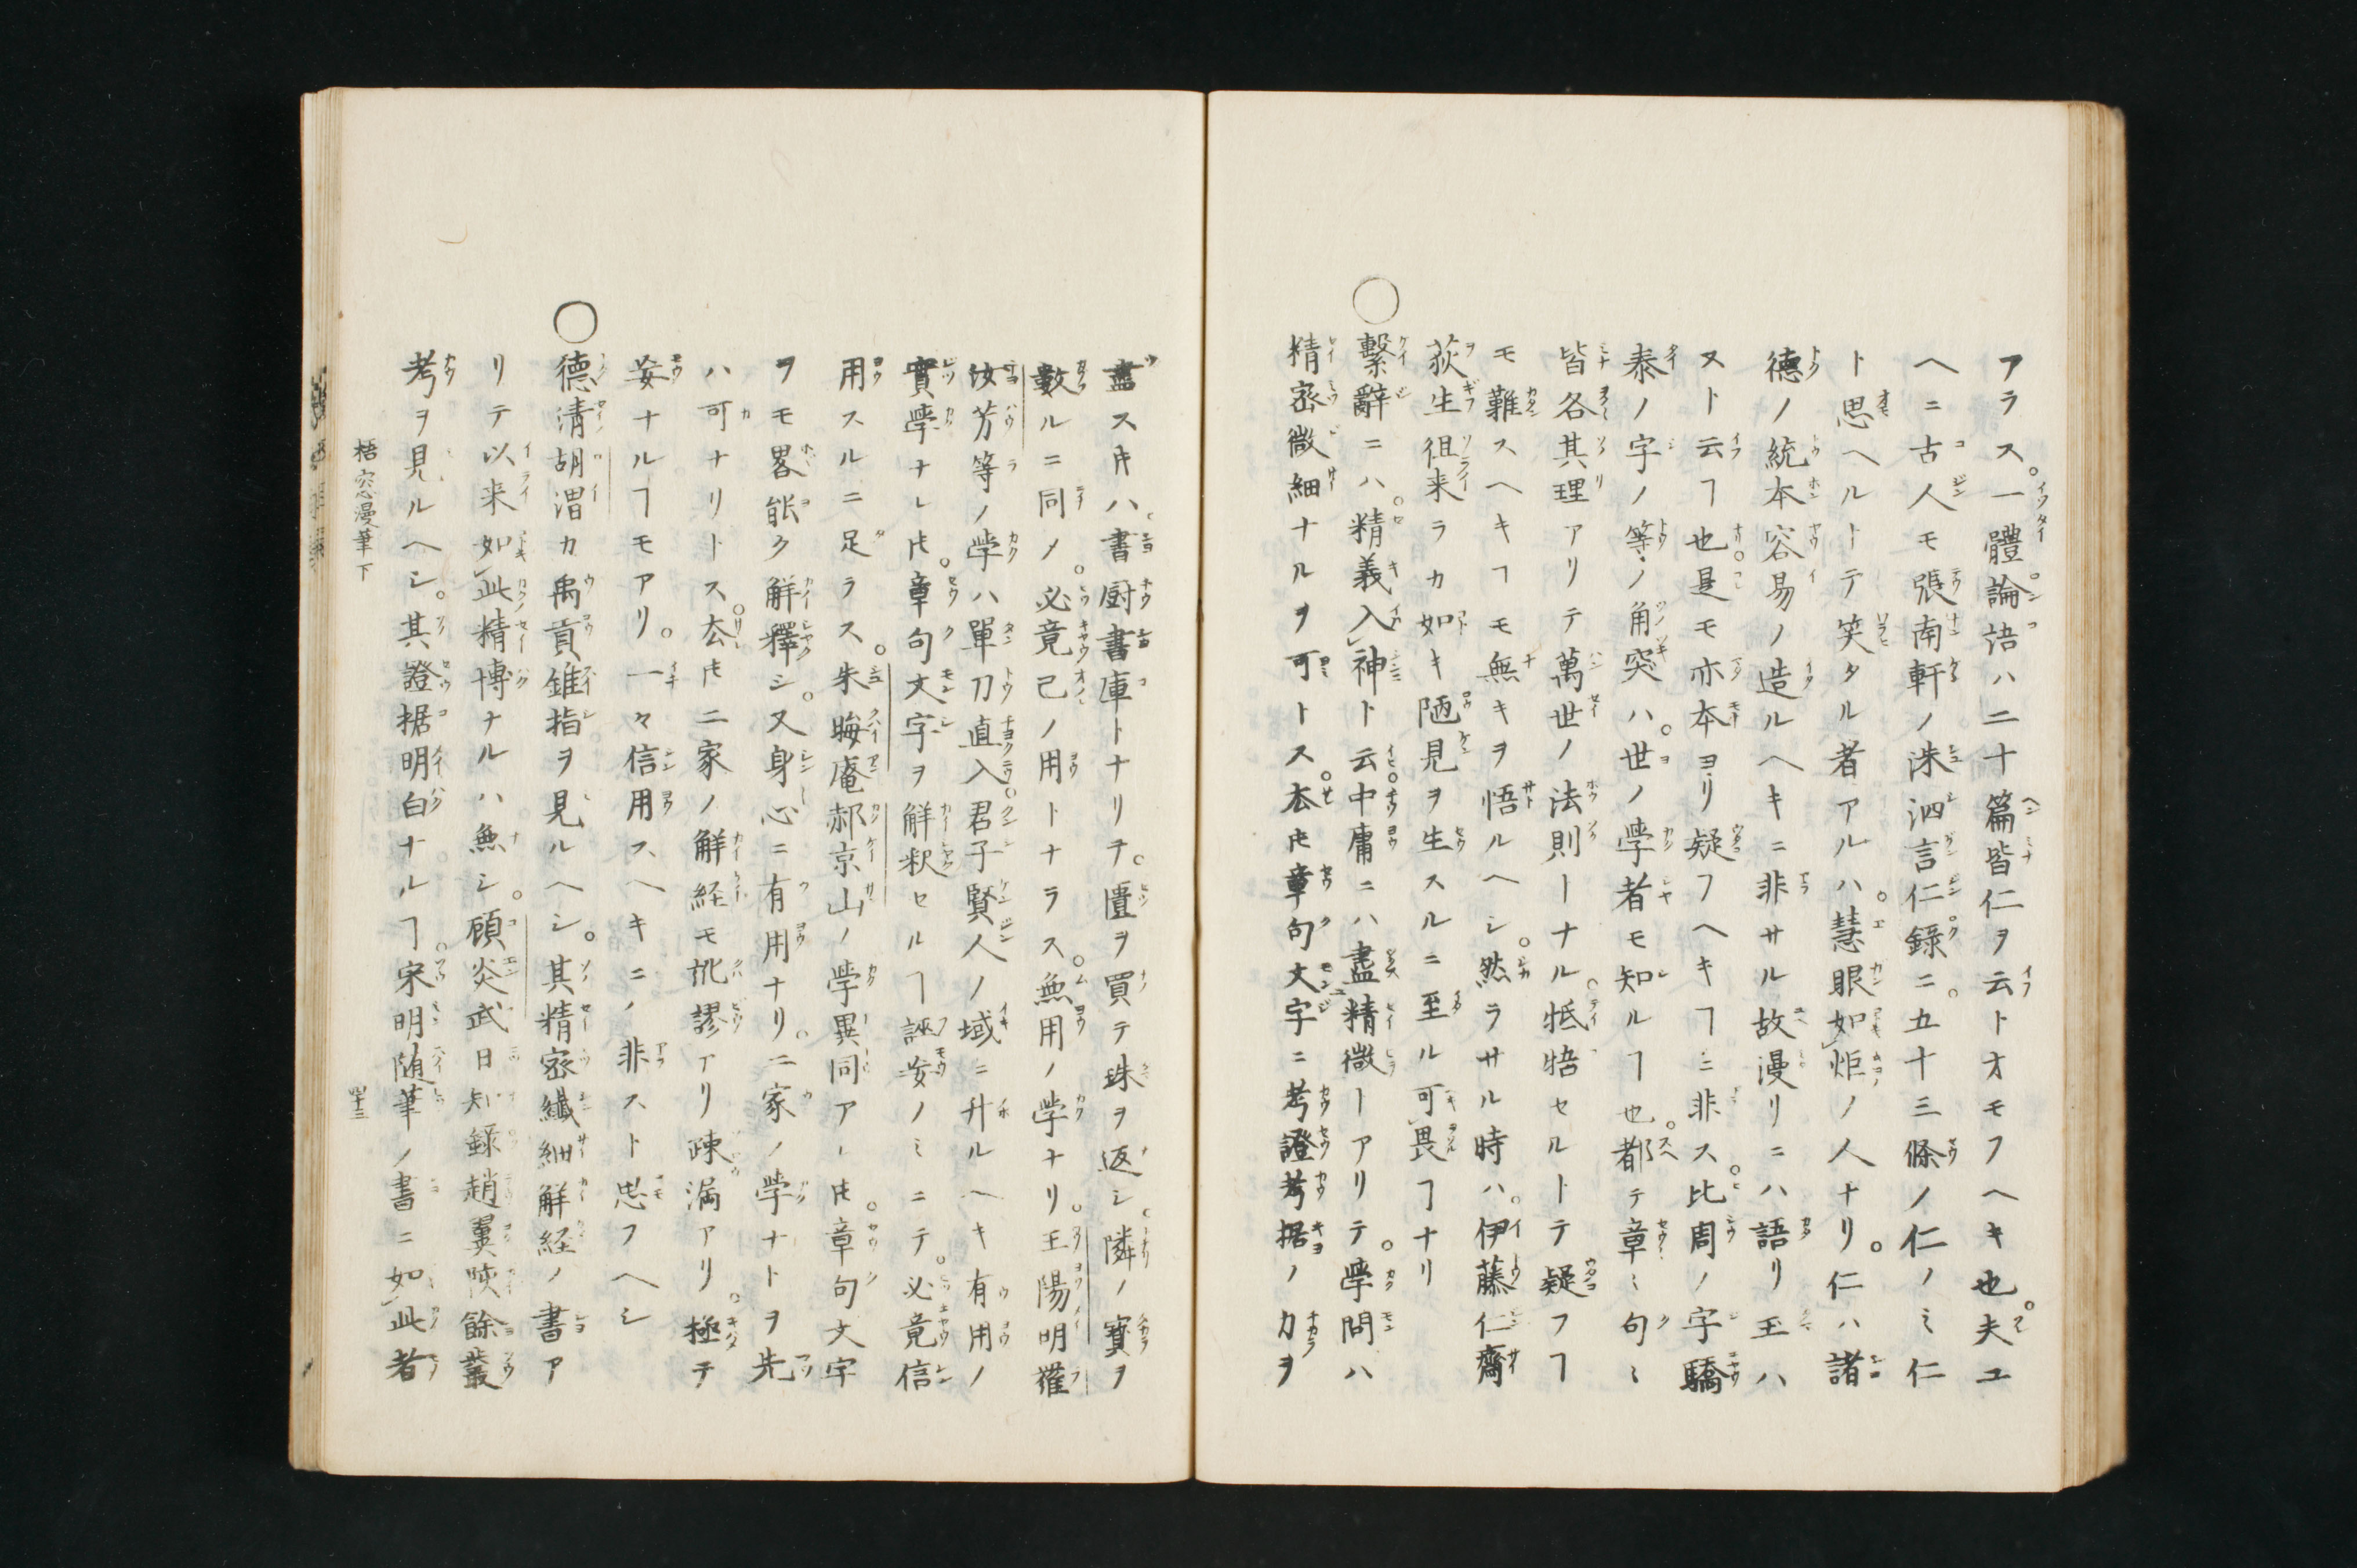 フラス。一體論語ハ二十篇皆仁ヲ云トオモフヘキ也。夫ユ
ヘニ古人モ張南軒ノ洙泗言仁錄ニ。五十三條ノ仁ノミ仁
ト思ヘルトテ笑タル者アルハ。慧眼如炬ノ人ナリ。仁ハ諸
德ノ統本容易ノ造ルヘキニ非サル故漫リニハ語リ玉ハ
ヌト云ヿ也。是モ亦本ヨリ疑フヘキヿニ非ス。比周ノ字驕
泰ノ字ノ等ノ角突ハ。世ノ學者モ知ルヿ也。都テ章〻句〻
皆各其理アリテ萬世ノ法則ーナル。牴牾セルトテ疑フヿ
モ難スヘキヿモ無キヲ悟ルヘシ。然ラサル時ハ。伊藤仁齋
荻生徂来ラカ如キ陋見ヲ生スルニ至ル可畏ヿナリ
○繫辭ニハ。精義入神ト云。中庸ニハ盡精微ーアリテ。學問ハ
精密微細ナルヲ可トス。去𪜈章句文字ニ考證考据ノカヲ
盡ス𪜈ハ。書厨書庫トナリテ。匵ヲ買テ珠ヲ返シ。隣ノ寶ヲ
數ルニ同ノ。必竟己ノ用トナラス。無用ノ學ナリ。王陽明羅
汝芳等ノ學ハ單刀直入。君子賢人ノ域ニ升ルヘキ有用ノ
實學ナレ𪜈。章句文字ヲ解釈セルヿ誣妄ノミニテ。必竟信
用スルニ足ラス。朱晦庵郝京山ノ學異同アレ𪜈。章句文字
ヲモ畧能ク解釋シ。又身心ニ有用ナリ。二家ノ學ナトヲ先
ハ可ナリトス。去𪜈二家ノ解経モ訛謬アリ疎漏アリ。極テ
妄ナルヿモアリ。一々信用スヘキニノ非スト思フヘシ
○德清胡渭カ禹貢錐指ヲ見ルヘシ。其精密纖細解経ノ書ア
リテ以来如此精博ナルハ無シ。顧炎武日知錄趙翼陔餘叢
考ヲ見ルヘシ。其證据明白ナルヿ。宋明随筆ノ書ニ如此者
梧窓漫筆下
四十三